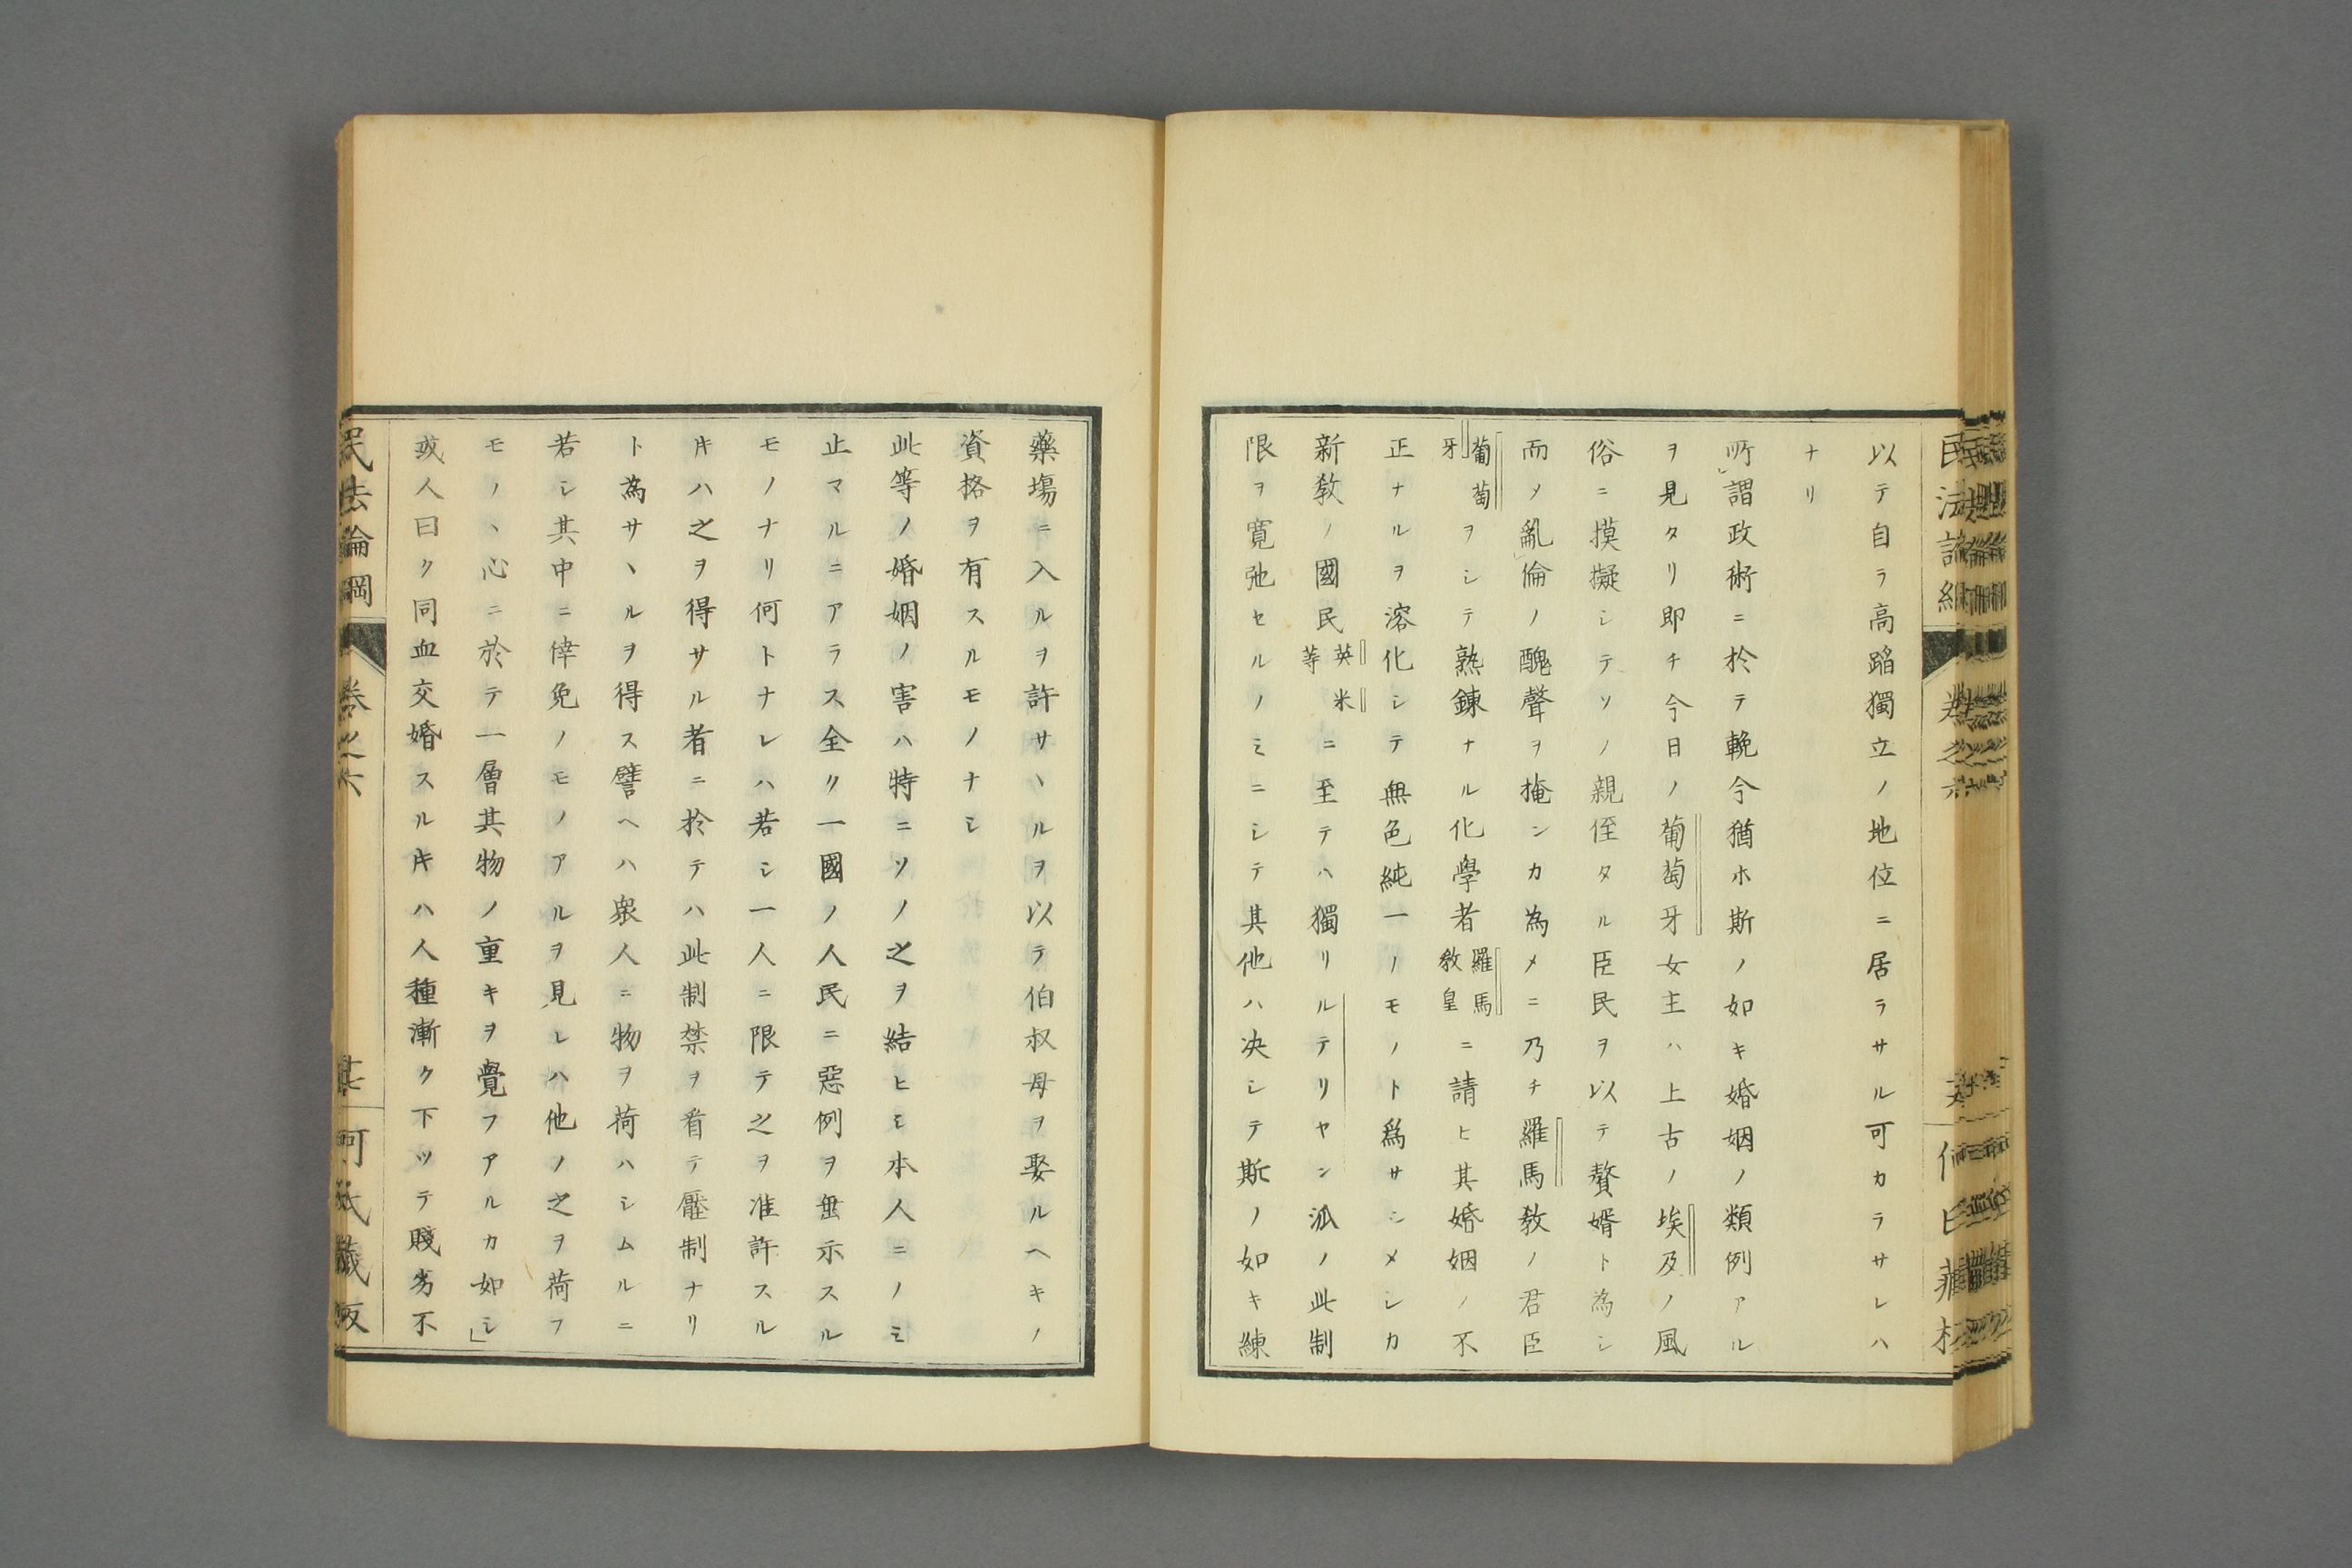 以テ自ラ高蹈獨立ノ地位ニ居ラサル可カラサレハ
ナリ
所謂政術ニ於テ輓今猶ホ斯ノ如キ婚姻ノ類例アル
ヲ見タリ即チ今日ノ葡萄牙女主ハ上古ノ埃及ノ風
俗ニ摸擬シテソノ親侄タル臣民ヲ以テ贅婿ト為シ
而メ亂倫ノ醜聲ヲ掩ンカ為メニ乃チ羅馬教ノ君臣
葡萄牙ヲシテ熟鍊ナル化學者羅馬教皇ニ請ヒ其婚姻ノ不
正ナルヲ溶化シテ無色純一ノモノト爲サシメシカ
新教ノ國民英米等ニ至テハ獨リルテリヤン派ノ此制
限ヲ寛弛セルノミニシテ其他ハ决シテ斯ノ如キ練
藥塲ニ入ルヲ許サヽルヲ以テ伯叔母ヲ娶ルヘキノ
資格ヲ有スルモノナシ
此等ノ婚姻ノ害ハ特ニソノ之ヲ結ヒシ本人ニノミ
止マルニアラス全ク一國ノ人民ニ惡例ヲ垂示スル
モノナリ何トナレハ若シ一人ニ限テ之ヲ准許スル
𪜈ハ之ヲ得サル者ニ於テハ此制禁ヲ看テ壓制ナリ
ト為サヽルヲ得ス譬ヘハ衆人ニ物ヲ荷ハシムルニ
若シ其中ニ倖免ノモノアルヲ見レハ他ノ之ヲ荷フ
モノヽ心ニ於テ一層其物ノ重キヲ覺フアルカ如シ」
或人曰ク同血交婚スル𪜈ハ人種漸ク下ツテ賤劣不
民法論綱 卷之六 何氏藏版